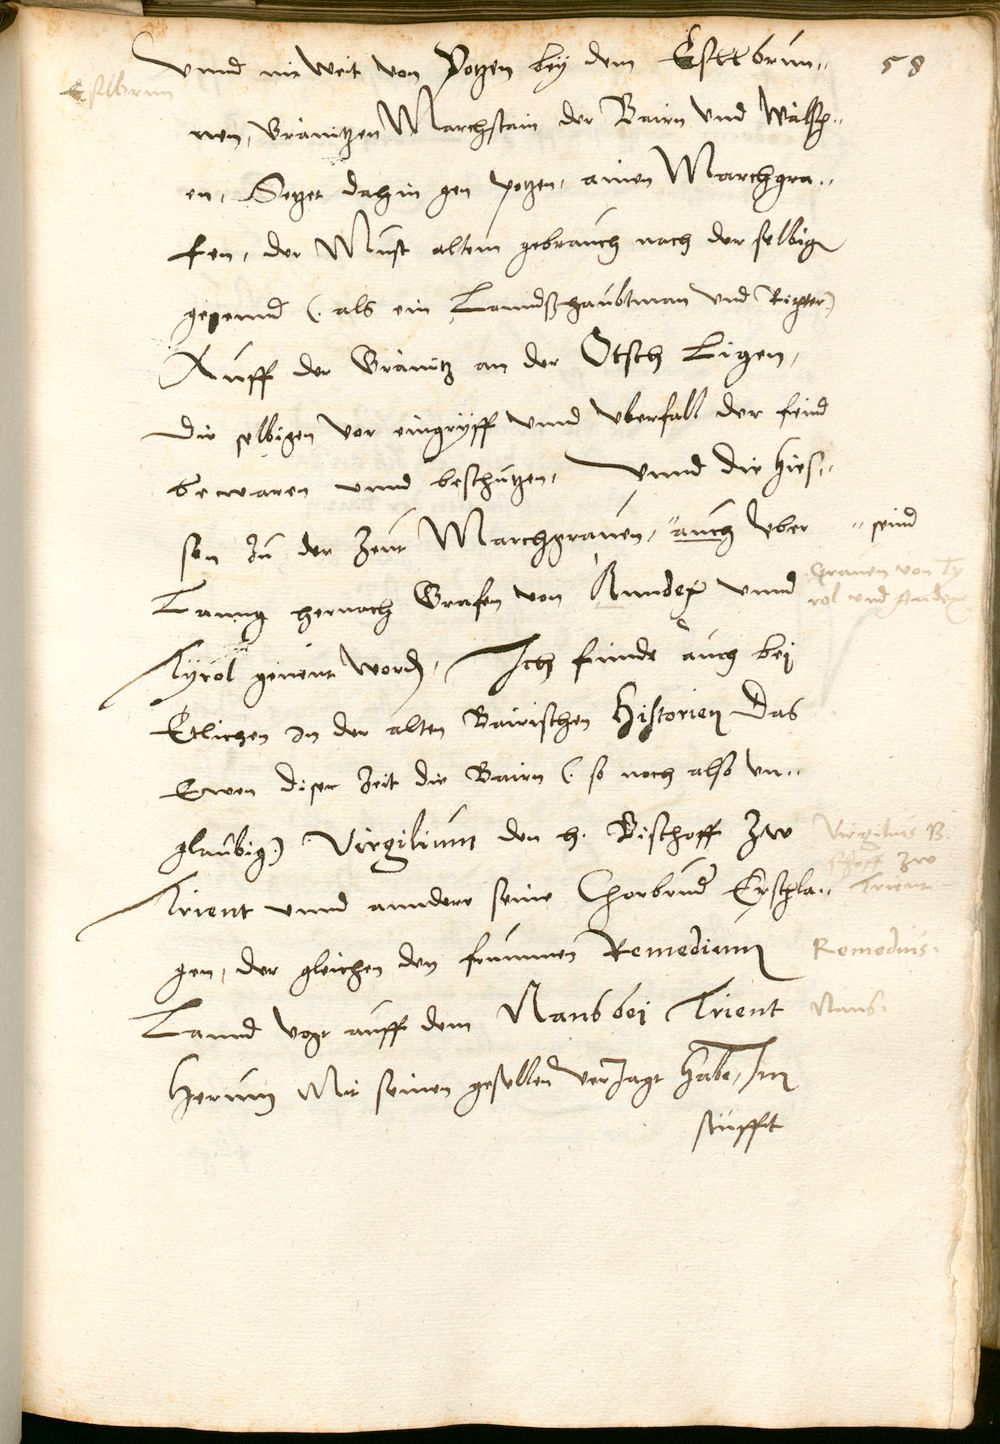 58
Eslbrun
vnnd nit weit von Potzen beÿ dem Eslbrun„
nen, Gränitzen Marchstain der Bairn vnd Wälsch„
en, Setzet dahin gen potzen, ainen Marchgra„
fen, der Must altem gebrauch nach der selbigen
gegennd (. als ein Lanndßhaubtman vnd Richter)
Auff der Gränitz an der Etsch Ligen,
die selbigen vor eingryff vnnd vberfall der feind
bewaren vnnd beschützen, vnnd die hies„
sen Zu der Zeitt Marchgrauen, "auch vber
" seind
Lanng hernach Grafen von Anndex vnnd
Grauen von Ty
rol vnd Andex
Tÿrol genent worden, Ich finde auch bej
Etlichen In der alten Bairischen Historien das
Eben diser Zeit die Bairn (. so noch also vn„
glaubig.) Virgilium den h. Bischoff Zw
Virgilius B.
schoff Zw
Trient
Trient vnnd anndere seine Chorbrüder Erschla„
gen, der gleichen den frummen Remedium
Remedius.
Lannd vogt auff dem Nans bej Trient
Nans.
Herumb Mit seinen gesellen verJagt habe, Im